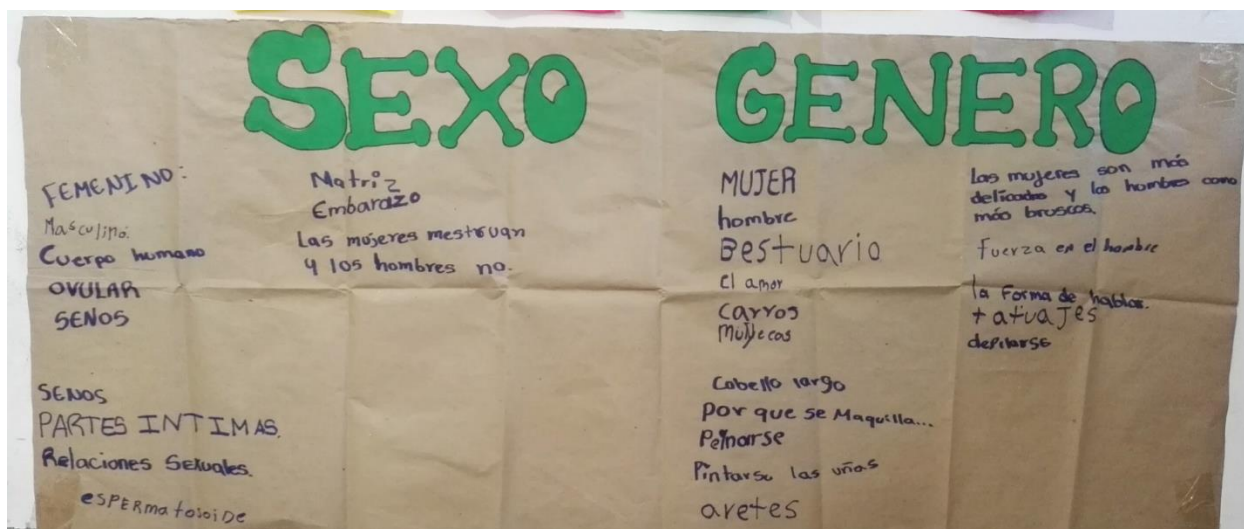 SEXO
FEMENINO:
Masculino.
Cuerpo humano
OVULAR
SENOS
SENOS
PARTES INTIMAS.
Relaciones Sexuales.
eSPERmatosoiDe
Matriz
Embarazo
Las mujeres mestruan
y los hombres no.
GENERO
MUJER
hombre
Bestuario
El amor
carros
muñecas
Cabello largo
Por que se Maquilla...
Peinarse
Pintarse las uñas
aretes
Las mujeres son más
delicadas y los hombres como
más bruscos.
Fuerza en el hombre
la Forma de hablar.
tatuajes
depilarse